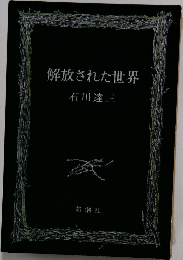 解放された世界
石川達三
新潮社